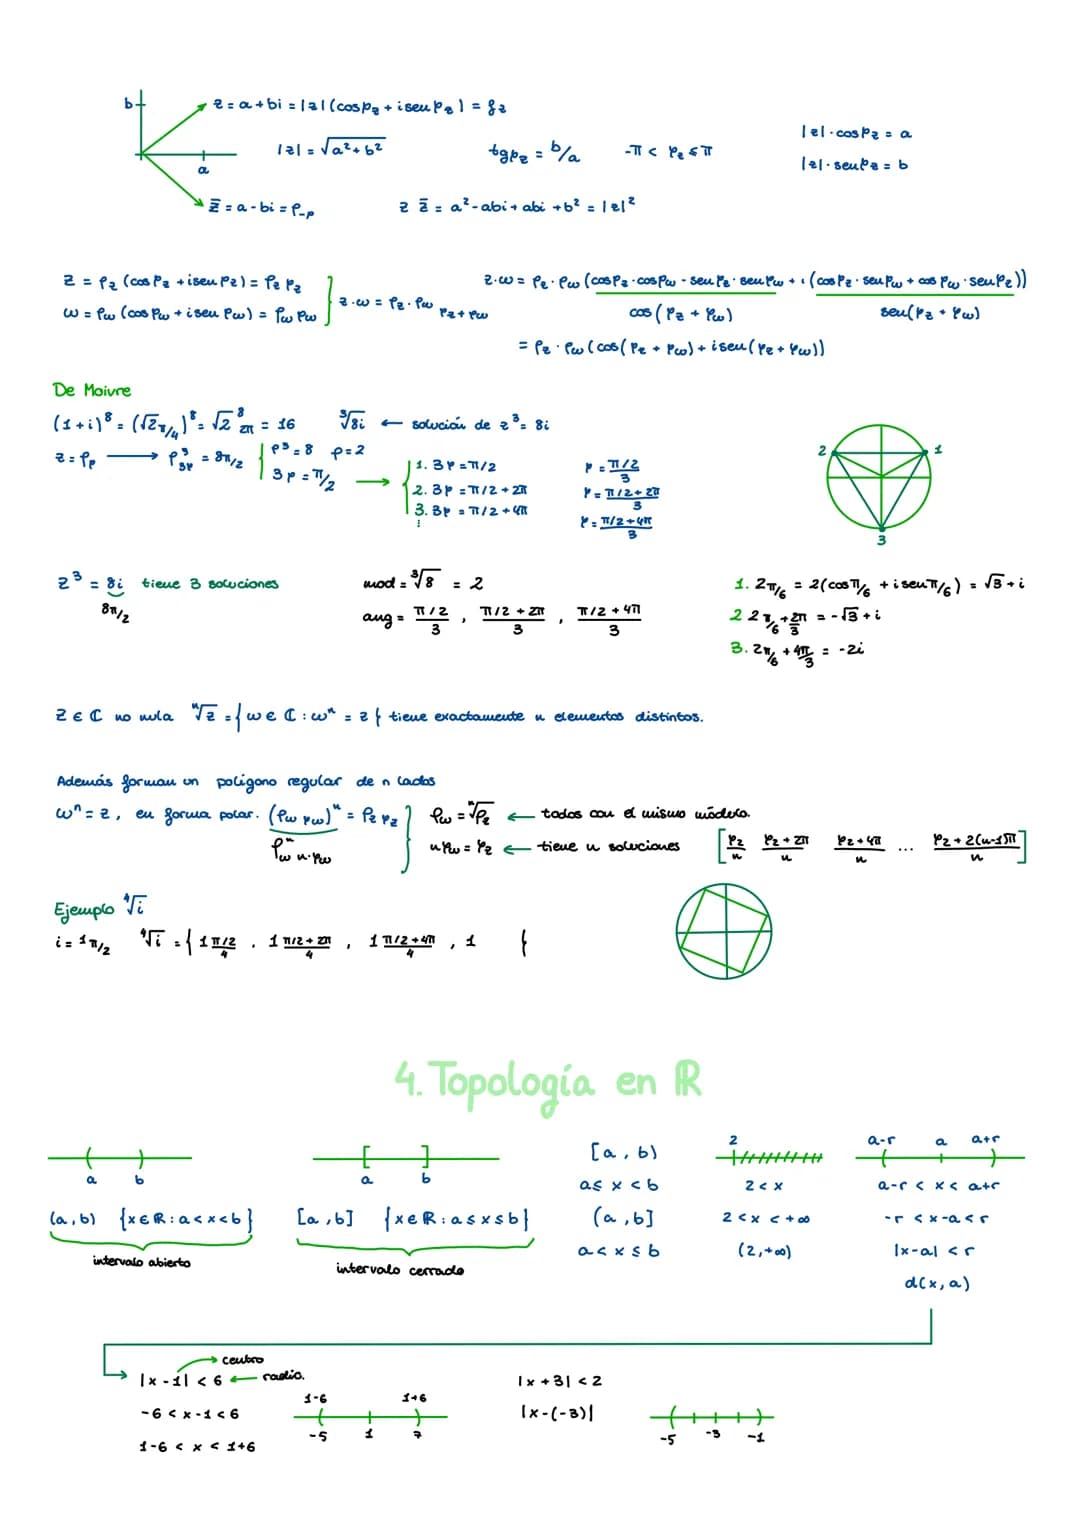 b
z = a + bi = |z| (cos φz + i sen φz) = ρz
|z| = √a² + b²
tg φz = b/a
-π < φz ≤ π
|z| · cos φz = a
|z| · sen φz = b
a
z̄ = a - bi = ρ-φ
z z̄ = a² - abi + abi + b² = |z|²
z = ρz (cos φz + i sen φz) = ρz φz
ω = ρω (cos φω + i sen φω) = ρω φω
z·ω = ρz · ρω φz + φω
z·ω = ρz · ρω (cos φz · cos φω - sen φz · sen φω + i (cos φz · sen φω + cos φω · sen φz))
cos (φz + φω)
sen (φz + φω)
= ρz · ρω (cos (φz + φω) + i sen (φz + φω))
De Moivre
(1+i)⁸ = (√2 π/4)⁸ = √2⁸ 2π = 16
∛8i ← solución de z³ = 8i
z = ρφ → ρ³ 3φ = 8π/2
ρ³ = 8 ρ = 2
3φ = π/2 →
1. 3φ = π/2
2. 3φ = π/2 + 2π
3. 3φ = π/2 + 4π
⋮
φ = π/2 / 3
φ = π/2 + 2π / 3
φ = π/2 + 4π / 3
2
1
3
z³ = 8i tiene 3 soluciones
8π/2
mod = ∛8 = 2
ang = π/2 / 3 , π/2 + 2π / 3 , π/2 + 4π / 3
1. 2π/6 = 2(cos π/6 + i sen π/6) = √3 + i
2 2π/6 + 2π/3 = -√3 + i
3. 2π/6 + 4π/3 = -2i
z ∈ ℂ no nula ⁿ√z = { ω ∈ ℂ : ωⁿ = z } tiene exactamente n elementos distintos.
Además forman un polígono regular de n lados
ωⁿ = z, en forma polar. (ρω φω)ⁿ = ρz φz
ρωⁿ n·φω
ρω = ⁿ√ρz ← todos con el mismo módulo.
nφω = φz ← tiene n soluciones
[ φz / n φz + 2π / n φz + 4π / n ... φz + 2(n-1)π / n ]
Ejemplo ⁴√i
i = 1 π/2 ⁴√i = { 1 π/2 / 4 , 1 π/2 + 2π / 4 , 1 π/2 + 4π / 4 , 1 }
4. Topología en ℝ
a b
(a, b) {x ∈ ℝ : a < x < b}
intervalo abierto
a b
[a, b] {x ∈ ℝ : a ≤ x ≤ b}
intervalo cerrado
[a, b)
a ≤ x < b
(a, b]
a < x ≤ b
2
2 < x
2 < x < +∞
(2, +∞)
a-r a a+r
a-r < x < a+r
-r < x-a < r
|x-a| < r
d(x, a)
centro
|x - 1| < 6 ← radio.
-6 < x - 1 < 6
1-6 < x < 1+6
1-6 1+6
-5 1 7
|x + 3| < 2
|x-(-3)|
-5 -3 -1